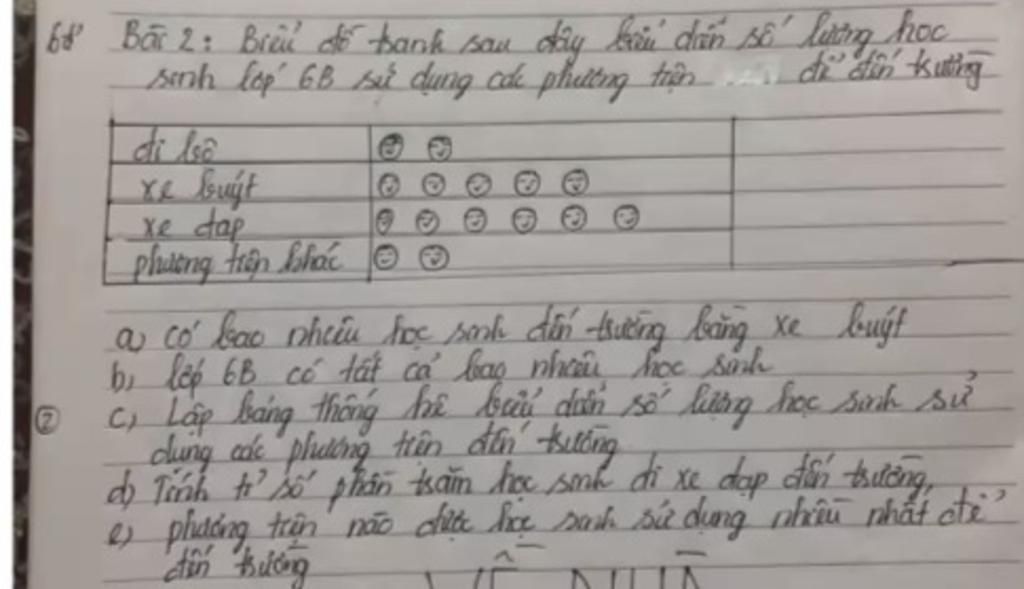 6đ' Bài 2: Biểu đồ tranh sau đây biểu diễn số lượng học
sinh lớp 6B sử dụng các phương tiện để đến trường
đi bộ
xe buýt
xe đạp
phương tiện khác
a) có bao nhiêu học sinh đến trường bằng xe buýt
b) lớp 6B có tất cả bao nhiêu học sinh
② c) Lập bảng thống kê biểu diễn số lượng học sinh sử
dụng các phương tiện đến trường
d) Tính tỉ số phần trăm học sinh đi xe đạp đến trường,
e) phương tiện nào được học sinh sử dụng nhiều nhất để
đến trường